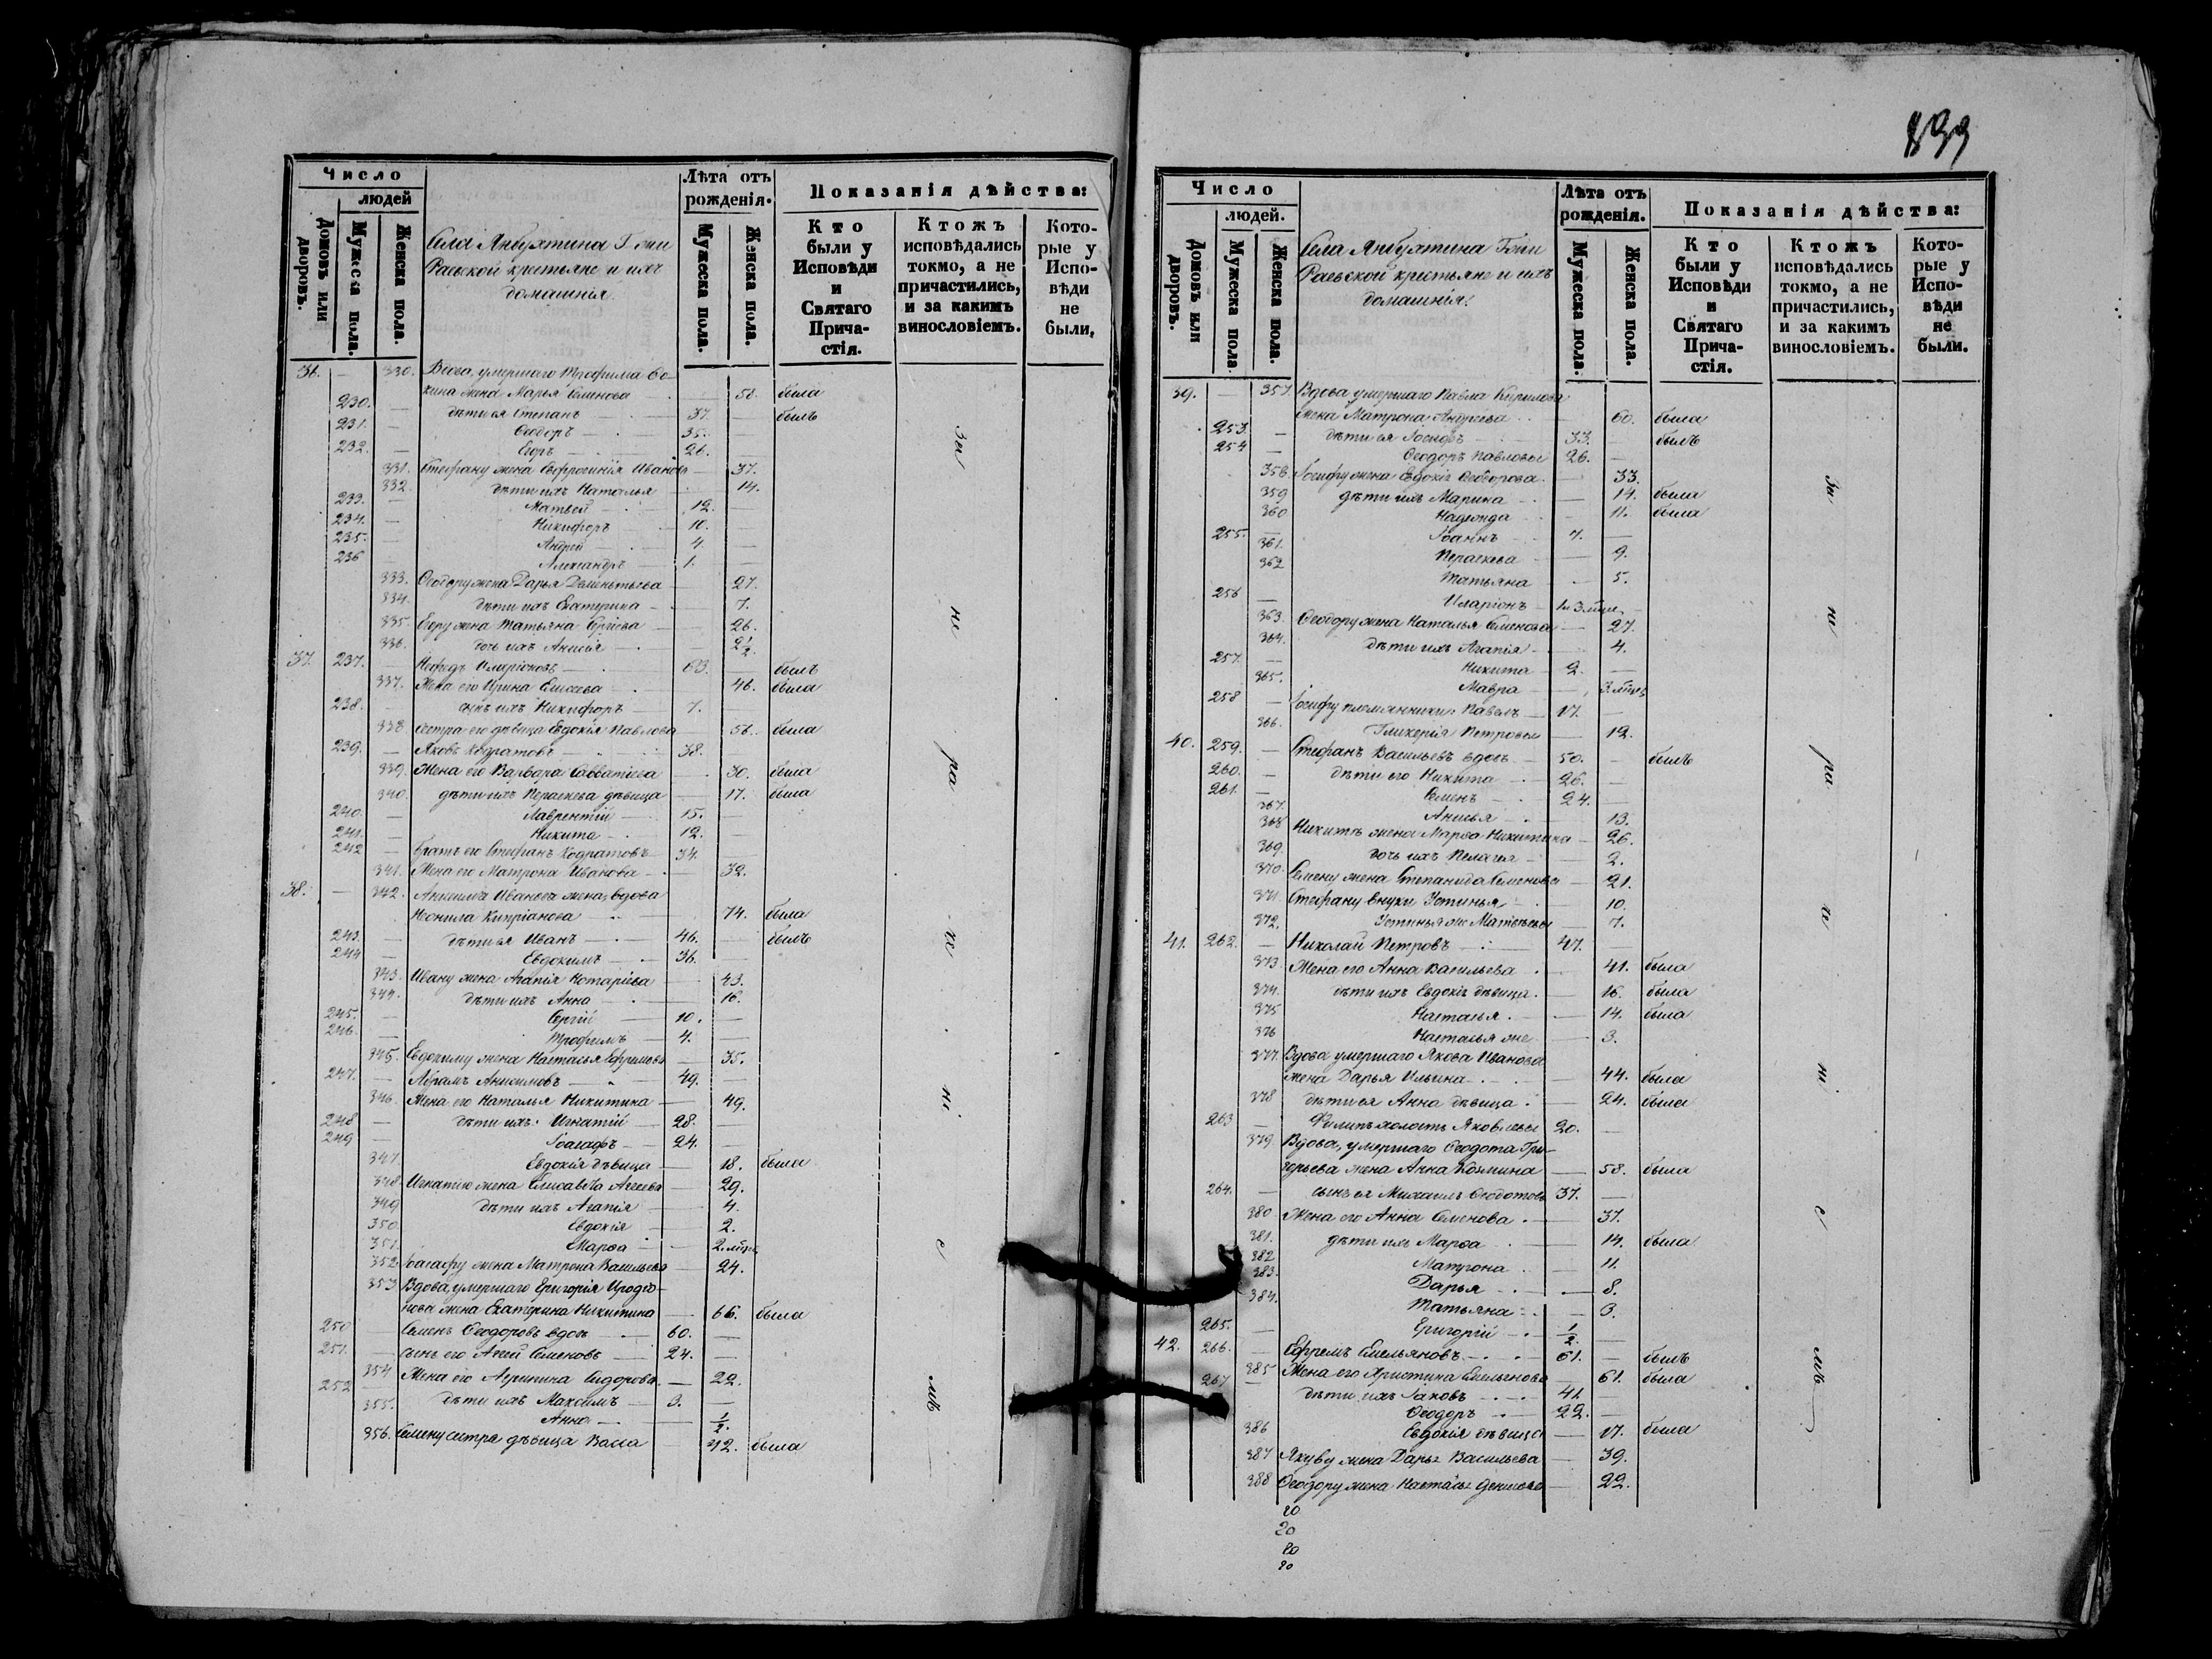 Число
людей
Домовъ или дворовъ.
Мужеска пола.
Женска пола.
Села Янбухтина Г. жи
Раевской крестьяне и ихъ
домашнія.
Лѣта отъ
рожденія.
Мужеска пола.
Женска пола.
Показанія дѣйства:
Кто
были у
Исповѣди
и
Святаго
Прича-
стія.
Ктожъ
исповѣдались
токмо, а не
причастились,
и за какимъ
винословіемъ.
Кото-
рые у
Испо-
вѣди
не
были,
36. — 330. Вдова, умершаго Трофима
жена Марья Семенова 58. была
230. — дѣти ея Степанъ 37. — былъ
231. — Ѳеодоръ — 35. —
232. — Егоръ — 26. —
331. Стефану жена Евфросинія Иванова — 37.
332. дѣти ихъ Наталья 14.
233. — Матвей 12. —
234. — Никифоръ 10. —
235. — Андрей 4. —
236 — Александръ 1. —
333. Ѳеодору жена Дарья Дементьева — 27.
334. дѣти ихъ Екатерина — 7.
335. Егору жена Татьяна Сергіева — 26.
336. дочь ихъ Анисія — 2 1/2.
37. 237. — Нефедъ Иларіоновъ 63. — былъ
337. Жена его Ирина Елисеева 46. была
238. — сынъ ихъ Никифоръ — 7. —
338. Сестра его дѣвица Евдокія Павлова 56. была
239. — Яковъ Кодратовъ — 38.
339. Жена его Варвара Савватіева — 30. была
340. дѣти ихъ Параскева дѣвица — 17. была
240. — Лаврентій — 15. —
241. — Никита — 12. —
242 — братъ его Стефанъ Кодратовъ 34. —
341. Жена его Матрона Иванова — 32.
38. — 342. Анисима Иванова жена вдова
Неонила Кипріанова — 74. была
243. — дѣти ея Иванъ — 46. — былъ
244 — Евдокимъ — 36. —
343. Ивану жена Агапія Нотаріева — 43.
344. дѣти ихъ Анна — 16.
245. — Сергій 10. —
246. — Трофимъ — 4. —
345. Евдокиму жена Настасья Ефремова 35.
247. — Абрамъ Анисимовъ — 49. —
346. Жена его Наталья Никитина — 49.
248 — дѣти ихъ: Игнатій — 28. —
249 — Іоасафъ — 24. —
347. Евдокія дѣвица — 18. была
348. Игнатію жена Елисавета Агеева 29.
349 дѣти ихъ Агапія — 4.
350. Евдокія — 2.
351. Марѳа — 2. мѣся
352. Іоасафу жена Матрона Васильева — 24.
353 Вдова, умершаго Григорія
жена Екатерина Никитина — 66. была
250 — Семенъ Ѳеодоровъ вдовъ — 60. —
251. — сынъ его Агей Семеновъ — 24. —
354 Жена его Агрипина Сидорова — 22.
252 — дѣти ихъ Максимъ — 3. —
355. Анна — 1/2.
356. Семену сестра дѣвица Васса 42. была
За
не
ра
че
ні
е
мъ
899
Число
людей.
Домовъ или дворовъ.
Мужеска пола
Женска пола.
Села Янбухтина Г. жи
Раевской крестьяне и ихъ
домашнія.
Лѣта отъ
рожденія.
Мужеска пола.
Женска пола.
Показанія дѣйства:
Кто
были у
Исповѣди
и
Святаго
Прича-
стія.
Ктожъ
исповѣдались
токмо, а не
причастились,
и за какимъ
винословіемъ.
Кото-
рые у
Испо-
вѣди
не
были.
39. — 357. Вдова умершаго Павла Кирилова
жена Матрона Андреева 60. была
253. — дѣти ея Іосифъ — 33. — былъ
254 — Ѳеодоръ Павловы 26. —
358. Іосифу жена Евдокія Ѳеодорова — 33.
359 дѣти ихъ Марина — 14. была
360 Надежда — 11. была
255. — Іоаннъ 7. —
361. Параскева — 9.
362 Татьяна — 5.
256 — Иларіонъ — 1 и 3 мѣся —
363. Ѳеодору жена Наталья Семенова — 27.
364. дѣти ихъ Агапія — 4.
257. — Никита — 2. —
365. Мавра — 3. мѣся
258 — Іосифу племянники Павелъ — 17. —
366. Гликерія Петровы — 12.
40. 259. — Стефанъ Васильевъ вдовъ — 50. — былъ
260. — дѣти его Никита — 26. —
261. — Семенъ — 24. —
367. Анисья — 13.
368 Никитѣ жена Марѳа Никитина — 26.
369. дочь ихъ Пелагея — 2.
370. Семену жена Степанида Семенова — 21.
371. Стефану внуки Устинья 10.
372. Устинья же Матвѣевы — 7.
41. 262. — Николай Петровъ — 47. —
373 Жена его Анна Васильева 41. была
374. дѣти ихъ Евдокія дѣвица. — 16. была
375 Настасья. — 14. была
376 Настасья же — 3.
377. Вдова умершаго Якова Иванова
жена Дарья Ильина — 44. была
378 дѣти ея Анна дѣвица — 24. была
263 — Филипъ холостъ Яковлевы 20. —
379 Вдова, умершаго Ѳеодота Гри-
горьева жена Анна Козмина — 58. была
264. — сынъ ея Михаилъ Ѳеодотовъ 37. —
380 Жена его Анна Семенова — 37.
381. дѣти ихъ Марѳа — 14. была
382 Матрона — 11.
383. Дарья — 8.
384. Татьяна — 3.
265. — Григорій — 1/2. —
42. 266. — Ефремъ Емельяновъ — 61. — былъ
385 Жена его Христина Емельянова — 61. была
267 — дѣти ихъ Іаковъ — 41. —
Ѳеодоръ — 22. —
386 Евдокія дѣвица — 17. была
387 Якову жена Дарья Васильева — 39.
388 Ѳеодору жена Настасья Денисова — 22.
За
не
ра
че
ні
е
мъ
20
20
20
20